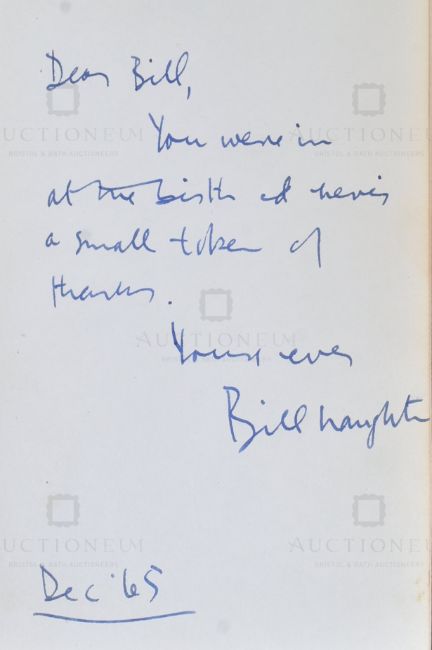 Dear Bill,
You were in
at the birth & here's
a small token of
thanks.
Yours ever
Bill Naughton
Dec '65
AUCTIONEUM
BRISTOL & BATH AUCTIONEERS
AUCTIONEUM
BRISTOL & BATH AUCTIONEERS
AUCTIONEUM
BRISTOL & BATH AUCTIONEERS
AUCTIONEUM
BRISTOL & BATH AUCTIONEERS
AUCTIONEUM
BRISTOL & BATH AUCTIONEERS